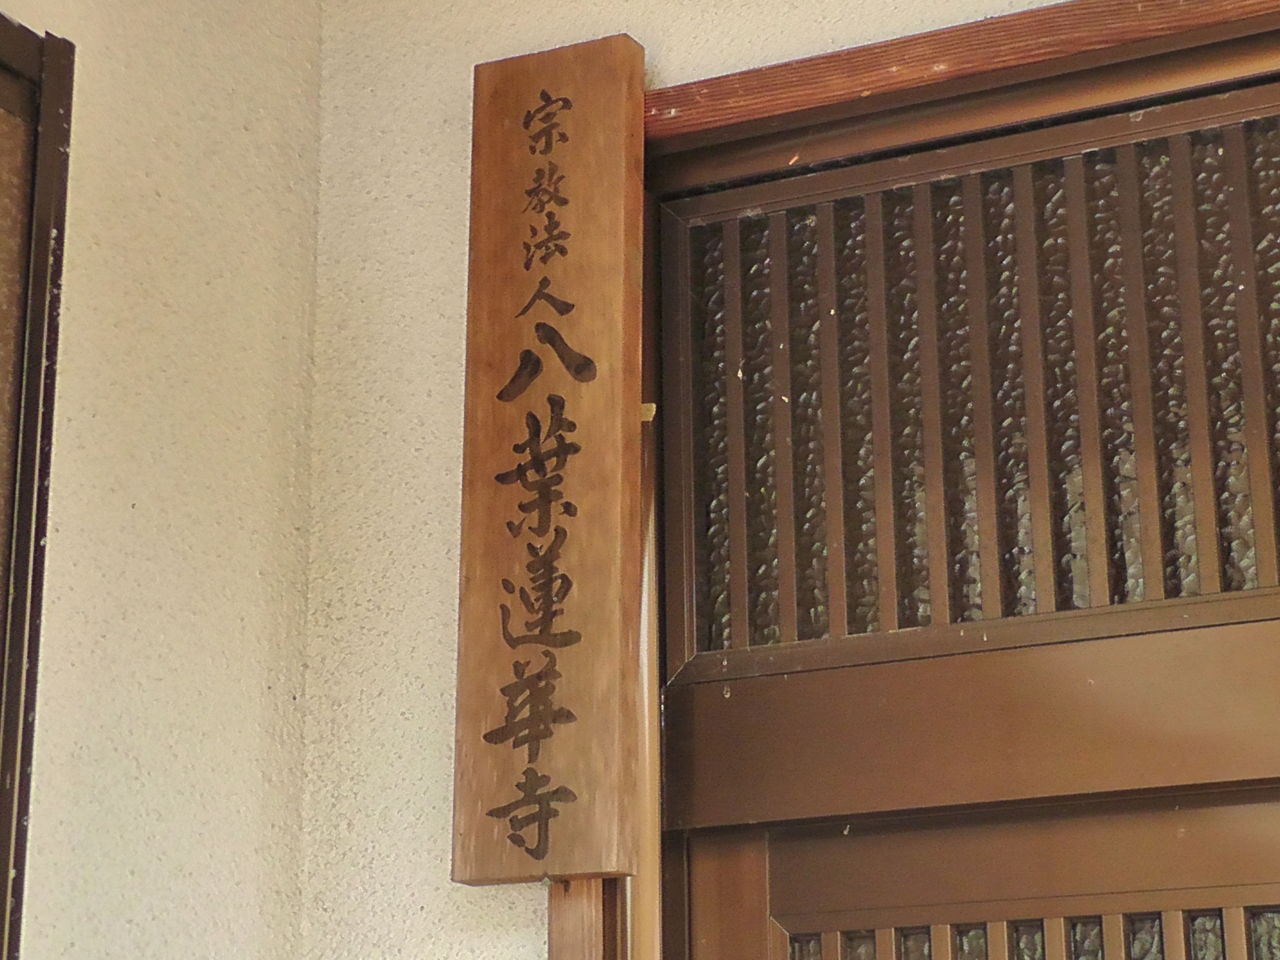 宗教法人八葉蓮華寺